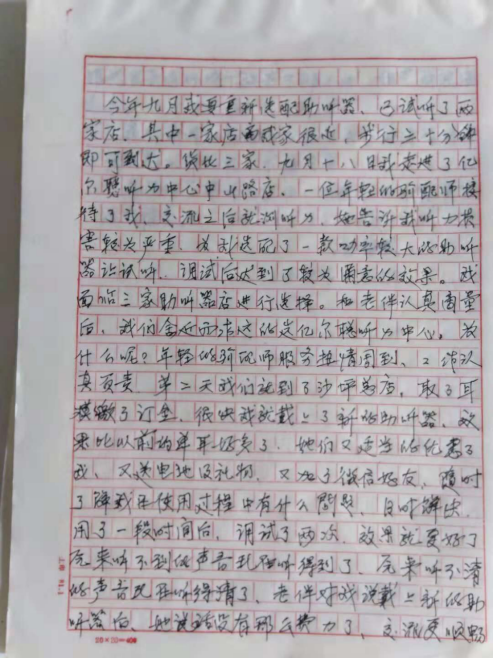 今年九月我要重新选配助听器，已试听了两
家店，其中一家店离我家很近，步行二十分钟
即可到达。货比三家，九月十八日我走进了亿
尔聪听力中心中山路店，一位年轻的验配师接
待了我，交流之后就测听力，她告诉我听力损
害较为严重，为我选配了一款功率较大的助听
器让试听，调试后达到了较为满意的效果。我
面临三家助听器店进行选择。和老伴认真商量
后，我们舍近而求远的选亿尔聪听力中心。为
什么呢？年轻的验配师服务热情周到、认
真负责，第二天我们就到了沙坪总店，取了耳
模缴了订金，很快我就戴上了新的助听器，效
果比以前的单耳好多了，她们又适当的优惠了
我、又送电池及礼物，又加了微信好友，随时
了解我在使用过程中有什么问题，及时解决。
用了一段时间后，调试了两次，效果就更好了
原来听不到的声音现在听得到了，原来听不清
的声音现在听得清了，老伴对我说戴上新的助
听器后，她说话没有那么费力了，交流更顺畅